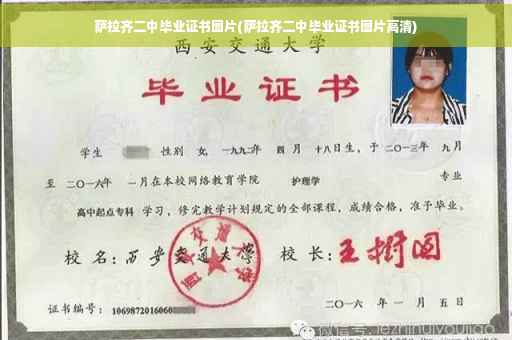 萨拉齐二中毕业证书图片(萨拉齐二中毕业证书图片高清)
西安交通大学
毕业证书
学生 性别 女, 一九九二年 四月 十八日生, 于 二〇一三年 九月
至 二〇一六年 一月在本校网络教育学院 护理学 专业
高中起点专科 学习, 修完教学计划规定的全部课程, 成绩合格, 准予毕业。
校 名: 西安交通大学 校 长: 王树国
西安交通大学
证书编号: 1069872016060
二〇一六 年 一 月 五 日
微信号: jiezhinuiyoujiao